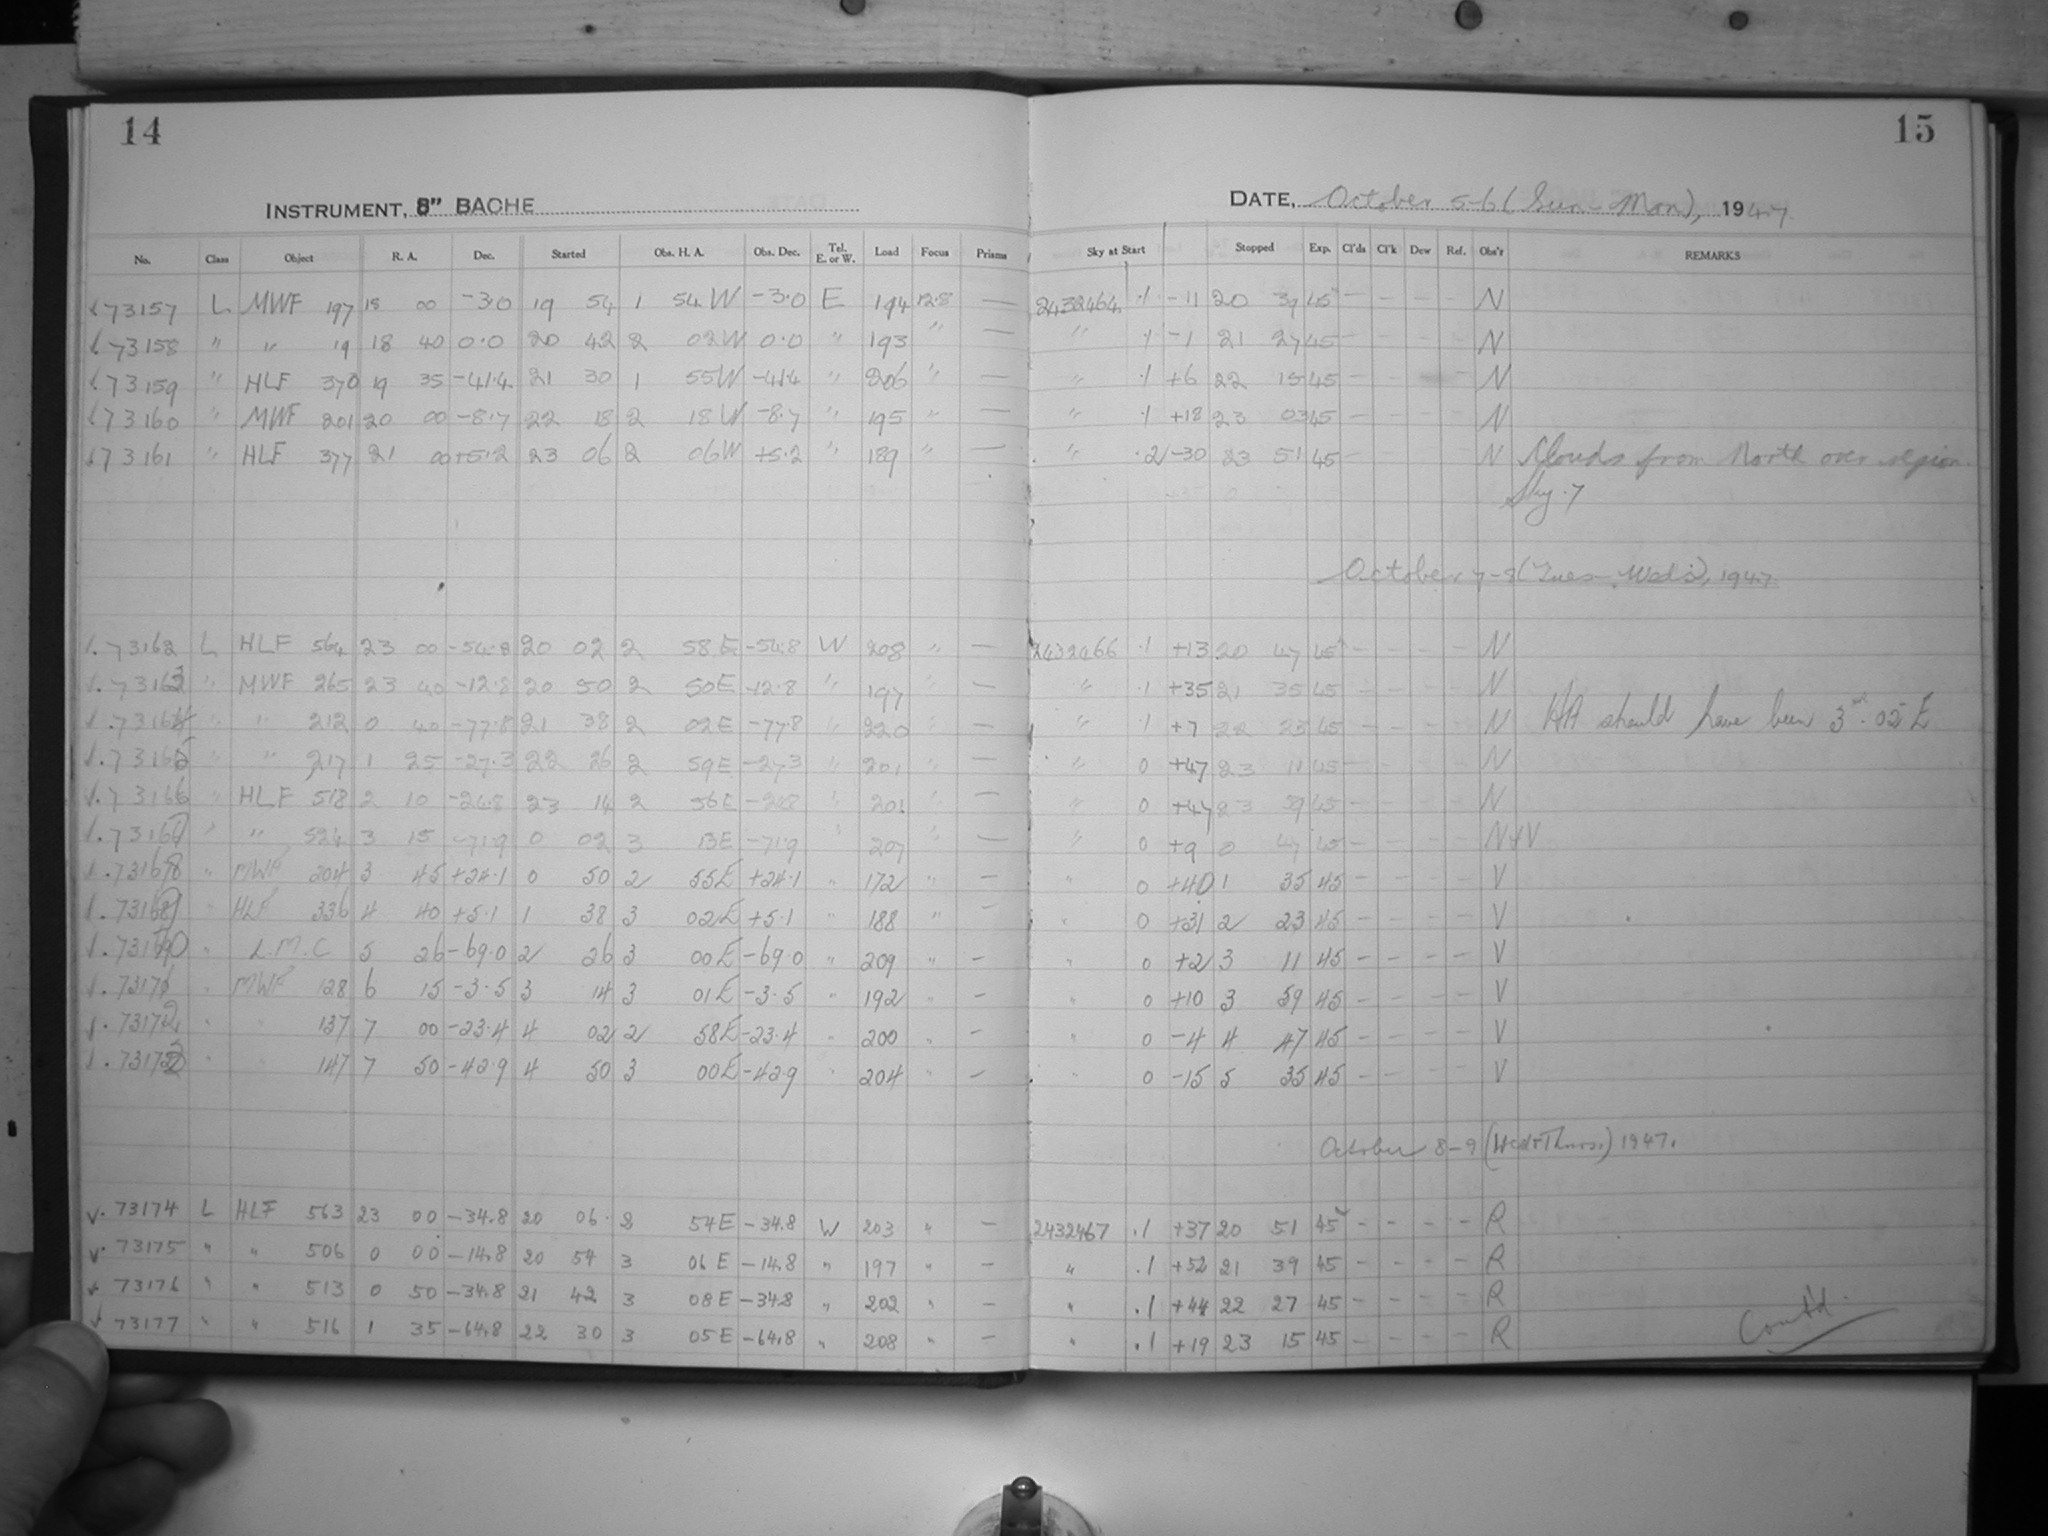 14
15
INSTRUMENT, 8" BACHE
DATE, October 5-6 (Sun-Mon), 1947
No. Class Object R. A. Dec. Started Obs. H. A. Obs. Dec. Tel. E. or W. Load Focus Prisms Sky at Start Stopped Exp. Cl'ds Cl'k Dew Ref. Obs'r REMARKS
√73157 L MWF 197 18 00 -3.0 19 54 1 54 W -3.0 E 194 12.8 — 2432464 .1 -11 20 39 45 - - - - N
√.73158 " " 19 18 40 0.0 20 42 2 02 W 0.0 " 193 " — " .1 -1 21 27 45 - - - - N
√73159 " HLF 370 19 35 -41.4 21 30 1 55 W -41.4 " 206 " — " .1 +6 22 15 45 - - - - N
√73160 " MWF 201 20 00 -8.7 22 18 2 18 W -8.7 " 195 " — " .1 +18 23 03 45 - - - - N
√73161 " HLF 377 21 00 +5.2 23 06 2 06 W +5.2 " 189 " — " .2 -30 23 51 45 - - N Clouds from North over region.
Sky .7
October 7-8 (Tues-Wed), 1947
√.73162 L HLF 564 23 00 -54.8 20 02 2 58 E -54.8 W 208 " — 2432466 .1 +13 20 47 45 - - - - N
√.73163 " MWF 265 23 40 -12.8 20 50 2 50 E -12.8 " 197 " — " .1 +35 21 35 45 - - - - N
√.73164 " " 212 0 40 -77.8 21 38 2 02 E -77.8 " 220 " — " .1 +7 22 23 45 - - - - N HA should have been 3 . 05 E
√.73165 " " 217 1 25 -27.3 22 26 2 59 E -27.3 " 201 " — " 0 +47 23 11 45 - - - - N
√.73166 " HLF 518 2 10 -24.8 23 14 2 56 E " 201 " — " 0 +47 23 59 45 - - - - N
√.73167 " " 524 3 15 -71.9 0 02 3 13 E -71.9 " 207 " — " 0 +9 0 47 45 - - - - N+V
√.73168 " MWF 204 3 45 +24.1 0 50 2 55 E +24.1 " 172 " — " 0 +40 1 35 45 - - - - V
√.73169 " HLF 336 4 40 +5.1 1 38 3 02 E +5.1 " 188 " — " 0 +31 2 23 45 - - - - V
√.73170 " L.M.C 5 26 -69.0 2 26 3 00 E -69.0 " 209 " — " 0 +2 3 11 45 - - - - V
√.73171 " MWF 128 6 15 -3.5 3 14 3 01 E -3.5 " 192 " — " 0 +10 3 59 45 - - - - V
√.73172 " " 137 7 00 -23.4 4 02 2 58 E -23.4 " 200 " — " 0 -4 4 47 45 - - - - V
√.73173 " " 147 7 50 -42.9 4 50 3 00 E -42.9 " 204 " — " 0 -15 5 35 45 - - - - V
October 8-9 (Wed+Thurs.) 1947.
√.73174 L HLF 563 23 00 -34.8 20 06 2 57 E -34.8 W 203 " — 2432467 .1 +37 20 51 45 - - - - R
√.73175 " " 506 0 00 -14.8 20 54 3 06 E -14.8 " 197 " — " .1 +52 21 39 45 - - - - R
√ 73176 " " 513 0 50 -34.8 21 42 3 08 E -34.8 " 202 " — " .1 +44 22 27 45 - - - - R
√ 73177 " " 516 1 35 -64.8 22 30 3 05 E -64.8 " 208 " — " .1 +19 23 15 45 - - - - R
Contd.